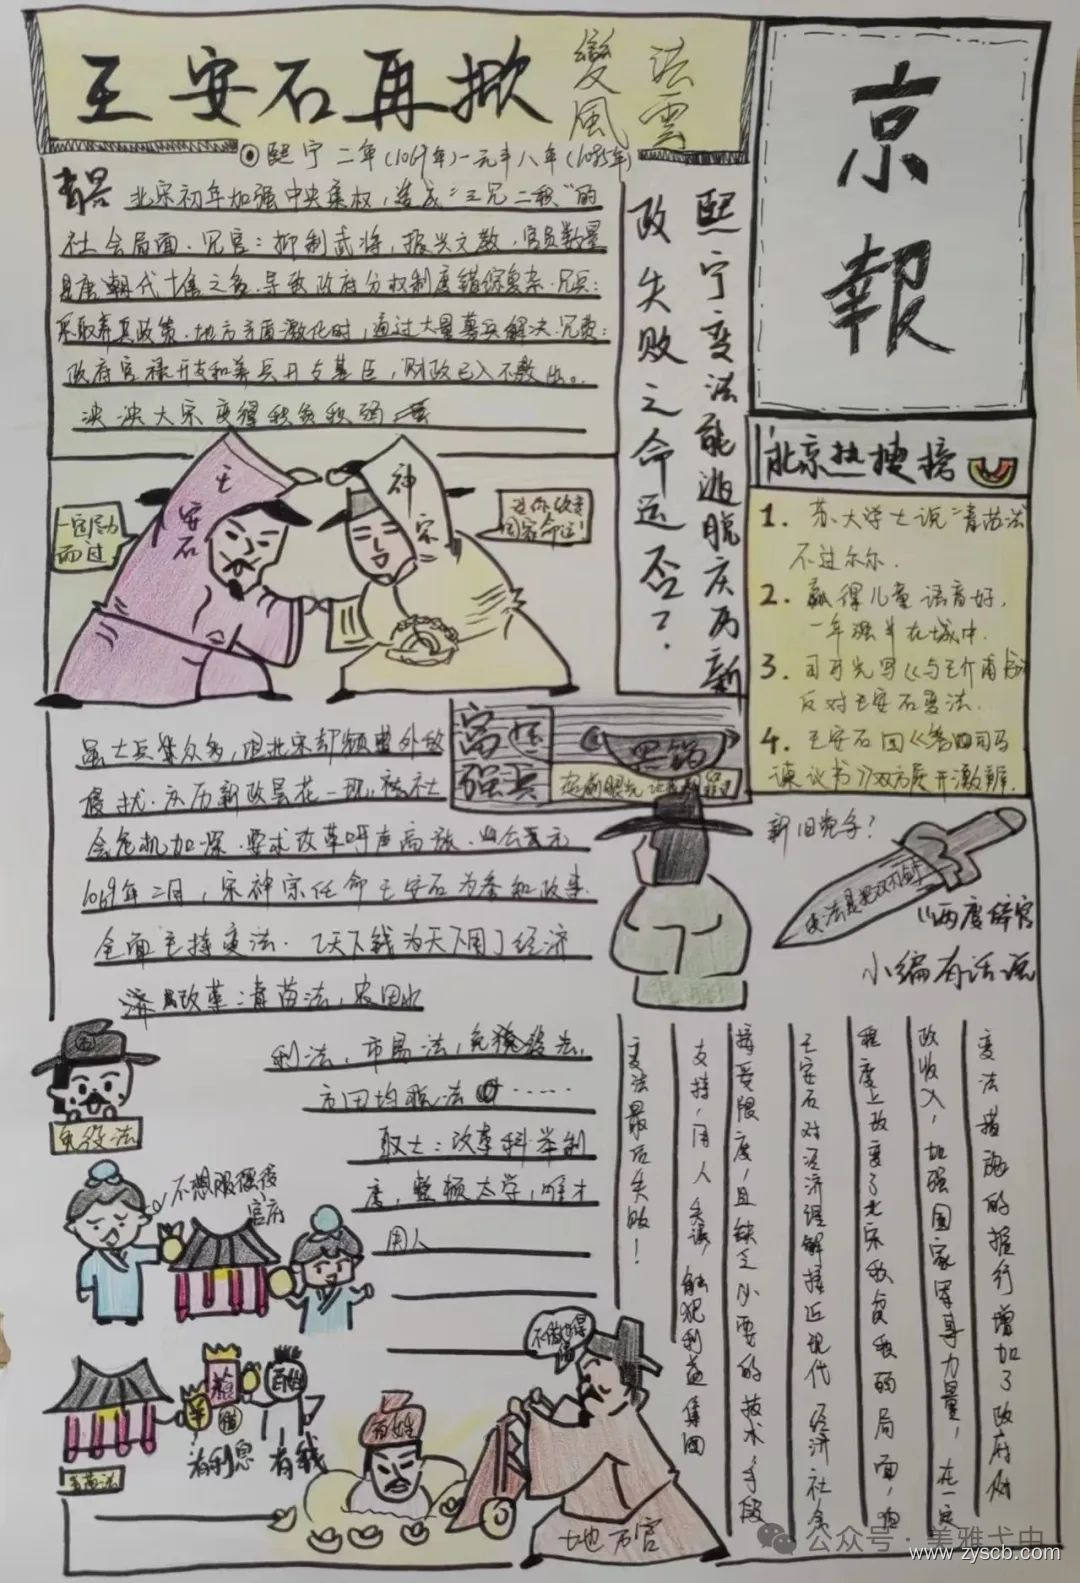 王安石再掀
變法
風雲
京報
熙宁二年(1069年)—元丰八年(1085年)
背景 北宋初年加强中央集权，造成"三冗二积"的
社会局面.冗官：抑制武将，振兴文教，官员数量
是唐朝代十倍之多.导致政府分权制度错综复杂.冗兵：
采取养兵政策.地方矛盾激化时，通过大量募兵解决.冗费：
政府官禄开支和养兵开支甚巨，财政已入不敷出。
泱泱大宋变得积贫积弱
熙宁变法能逃脱庆历新
政失败之命运否？
北京热搜榜
1. 苏大学士说"青苗法
不过尔尔.
2. 赢得儿童语音好，
一年强半在城中.
3. 司马光写《与王介甫书》
反对王安石变法.
4. 王安石回《答司马
谏议书》双方展开激辩.
王安石
神宗
一定尽力
而过
国家命运!
虽士兵集众多，但北宋却频豊外敌
侵扰.庆历新政昙花一现，社
会危机加深.要求改革呼声高涨.公元
1069年二月，宋神宗任命王安石为参知政事.
全面主持变法.《天下钱为天下用》经济
济 改革：青苗法，农田水
利法，市易法，免役法，
方田均税法……
取士：改革科举制
度，整顿太学，唯才
用人
富国
强兵
黑锅
新旧党争？
变法是把双刃剑
"两度辞官
小编有话说
变法措施的推行增加了政府财
政收入，加强国家军事力量，在一定
程度上改变了北宋积贫积弱局面，但
王安石对经济理解接近现代 经济社会
接受限度，且缺乏必要的技术手段
支持，用人失误，触犯利益集团
变法最后失败！
免役法
不想服徭役
官府
青苗法
有利息
有钱
百姓
百姓
地方官
公众号·美雅弋中
www.zyscb.com